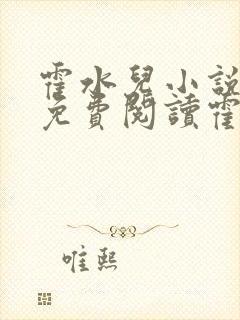 霍水兒小說
免費閱讀霍
唯熙